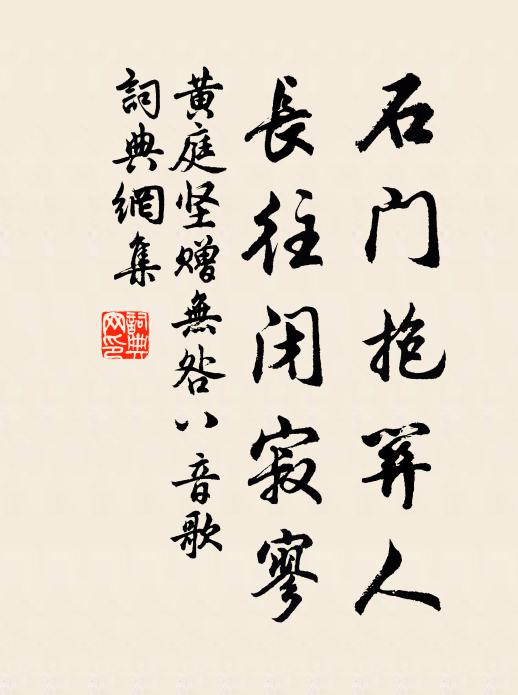 石门抱關人
長往闭寂寥
黄庭坚赠無咎八音歌
詞典網集
詞典网印